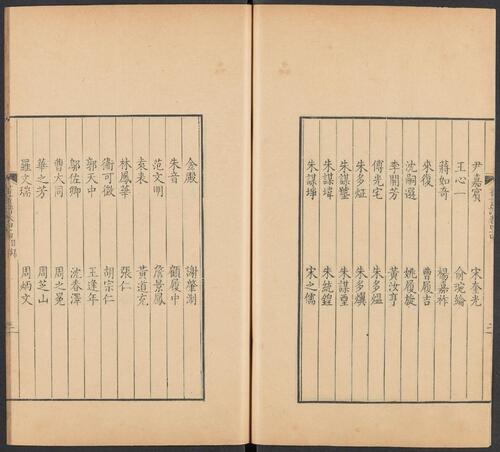 尹嘉賓 宋奎光
王心一 俞琬綸
蔣如奇 楊嘉祚
來復 曹履吉
沈嗣選 姚履旋
李開芳 黃汝亨
傅光宅 朱多熅
朱多炡 朱多𤏳
朱謀㙔 朱謀垔
朱謀㙔 朱統鍠
朱謀㙔 宋之儒
金殿 謝肇淛
朱音 顧履中
范文明 詹景鳳
袁表 黃道充
林鳳華 張仁
衞可徵 胡宗仁
郭天中 王逢年
鄒佐卿 沈春澤
曹大同 周之冕
華之芳 周芝山
羅文瑞 周炳文